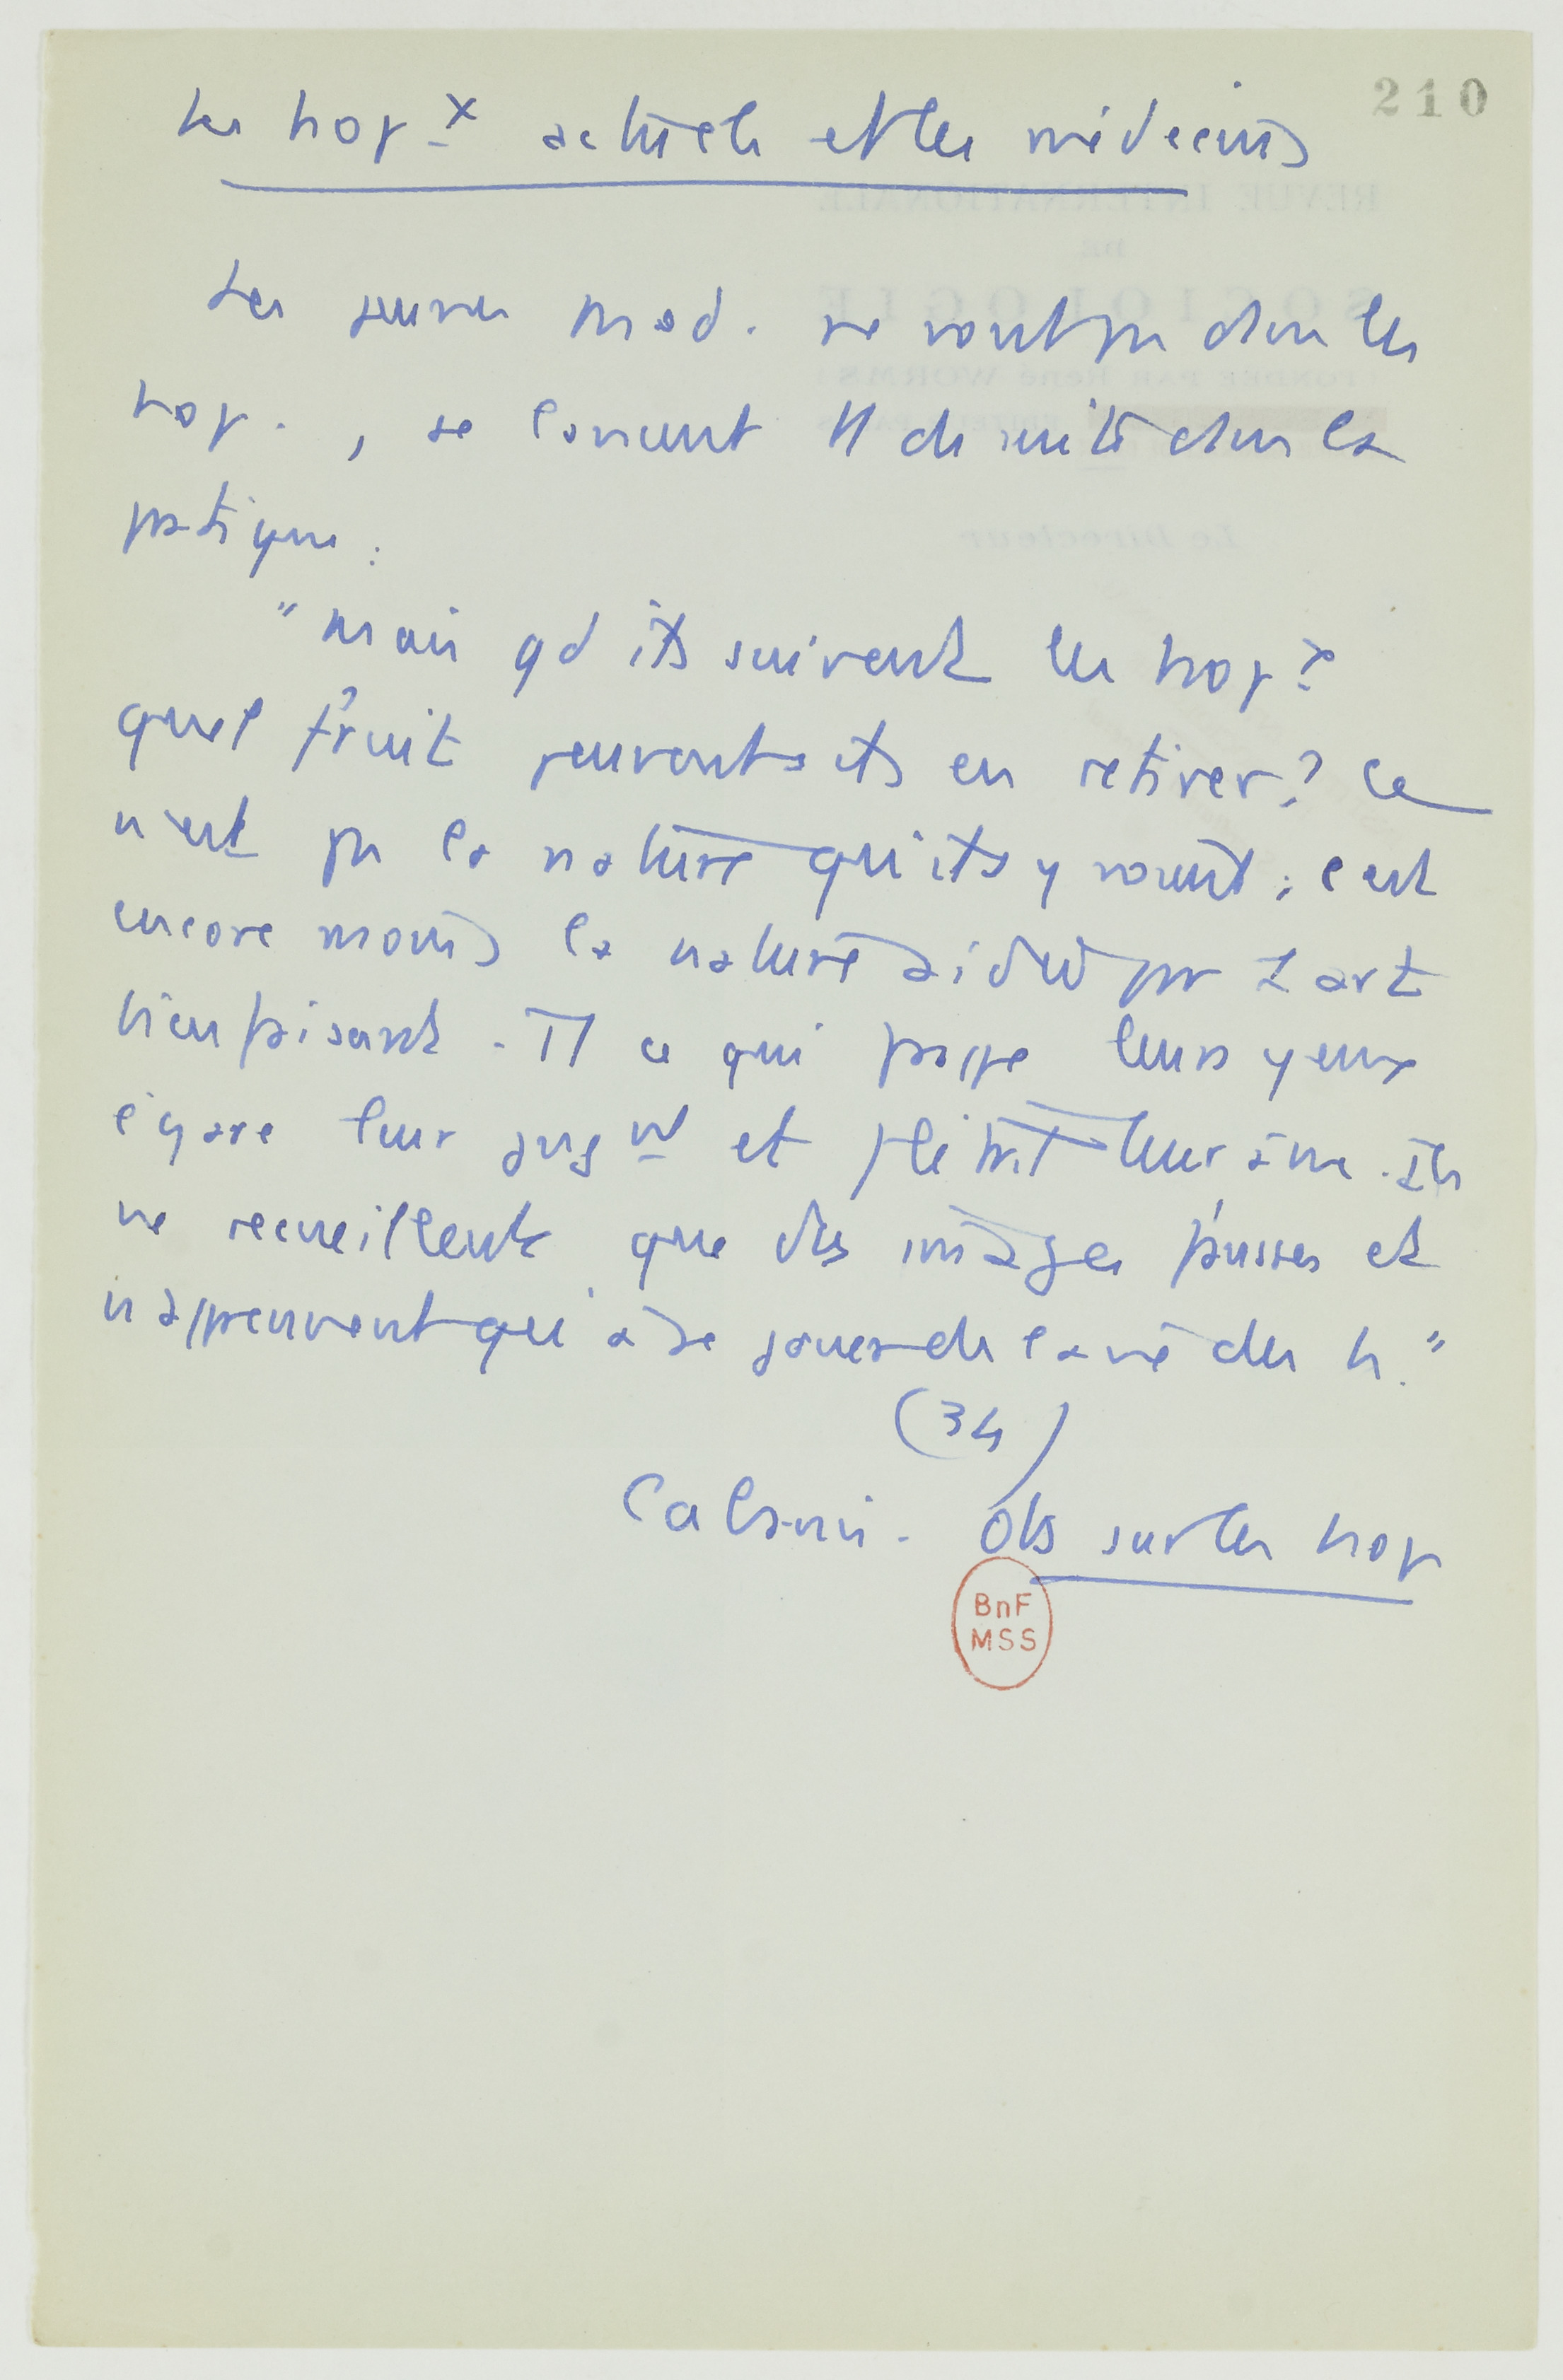 210
Les hopx actuels et les médecins
Les jeunes med. ne vont pas dans les
hop., se lancent tt de suite dans la
pratique :
"mais qd ils suivent les hopx
quel fruit peuvent ils en retirer ? Ce
n'est pas la nature qu'ils y voient ; c'est
encore moins la nature aidée par l'art
bienfaisant. Tt ce qui frappe leurs yeux
égare leur jugmt et flétrit leur âme. Ils
ne recueillent que des images fausses et
n'apprennent qu'à se jouer de la vie des h."
(34)
Cabanis. Obs sur les hop
BnF
MSS